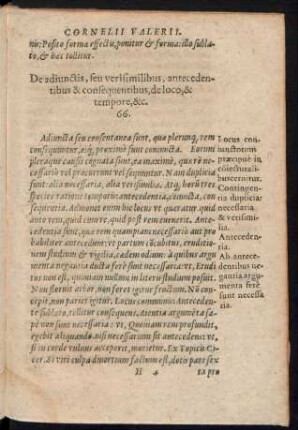 CORNELII VALERII.
nis: Posito forma effectu, ponitur & forma: illo subla-
to, & hæc tollitur.
De adiunctis, seu verisimilibus, anteceden-
tibus & consequentibus, de loco, &
tempore, &c.
66.
Adiuncta seu consentanea sunt, quæ plerunq; rem
consequuntur, eiq́; proximè sunt coniuncta. Eorum
pleraque causis cognata sunt, ea maximè, quæ necessa-
riò rem vel præcurrunt vel sequuntur. Nam duplicia
sunt: alia necessaria, alia verisimilia. Atq́; horū tres
species partibus temporis distributæ, adiuncta,
sequentia. Admonet enim hic locus vt quæratur, quid
ante rem, quid cum re, quid post rem euenerit. Antece-
dentia sunt, quæ ante rem quampiam necessariò aut pro
babiliter antecedunt: vt partum cōcubitus, eruditio-
nem studium & vigilia, cædem odium: à quibus argu
menta negantia ducta ferè sunt necessaria, vt: Erudi
tus non est, quoniam nihil operæ in literis studium posuit.
Non floruit arbor, non feret igitur fructum. Non cō-
cepit, non pariet igitur. Locus communis: Anteceden-
te sublato, tollitur consequens. Aientia argumēta sæ-
pè non sunt necessaria: vt, Quoniam rem profundit,
egebit aliquando. nisi necessariò sint antecedentia: vt,
si in corde vulnus acceperit, morietur. Ex Topicis Ci-
cer. Si viri culpa diuortium factum est, dotis pars sex
H 4
ta pro
Locus con-
iunctorum
præcipuè in
coiecturali-
bus cernitur.
Contingen-
tia duplicia:
necessaria
& verisimi-
lia.
Anteceden-
tia.
Ab antece-
dentibus ne-
gantia argu-
menta ferè
sunt necessa
ria.